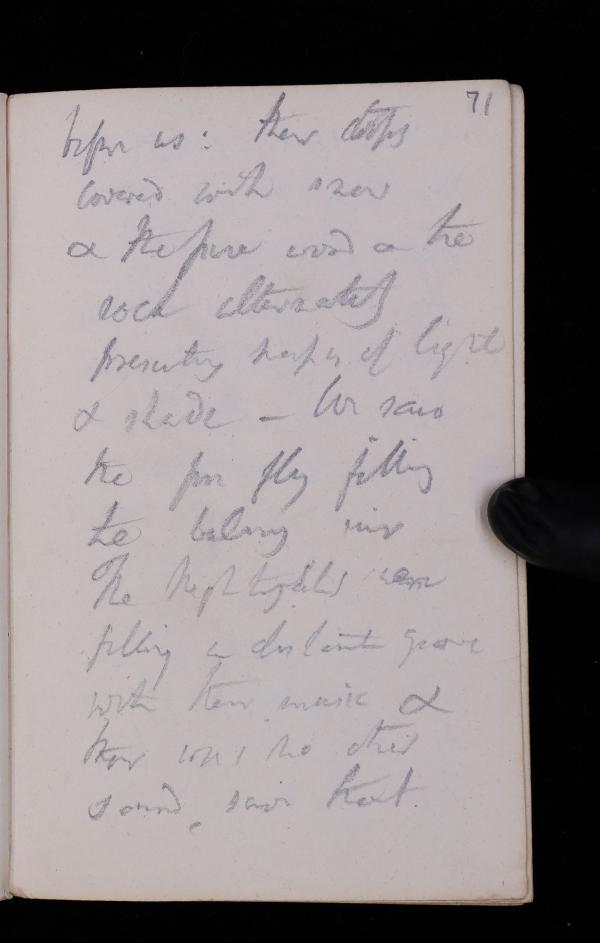 71
before us: their tops
covered with snow
& the pine wood & the
rock alternately
presenting shapes of light
& shade – We saw
the fire fly filling
the balmy air
The nightingales were
filling a distant grove
with their music &
there was no other
sound, save that